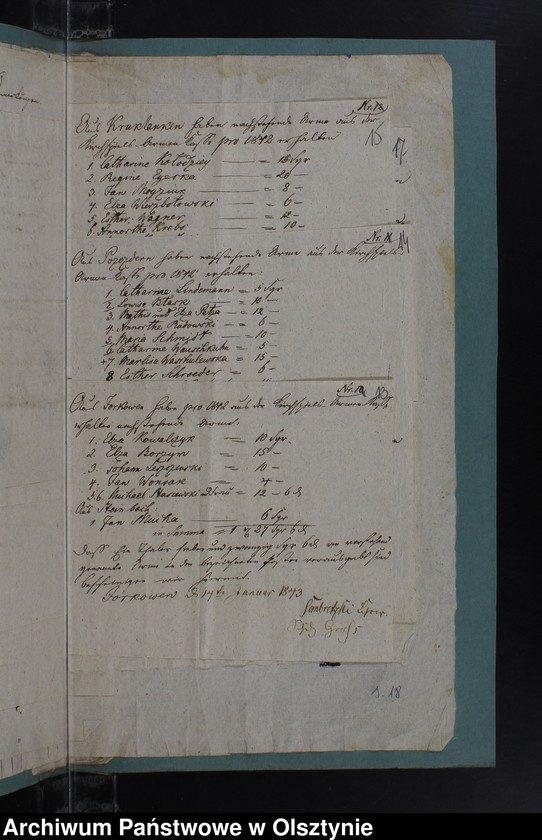 Nr. 18
Aus Kruklanken haben nachstehende Arme aus der
Kirchspiels-Armen Casse pro 1842 erhalten
15
17
1. Catharine Kołodziey — = 18 Sgr
2. Regine Czerka — = 20 —
3. Jan Moyzuik — = 8 —
4. Elza Wierzbotowski — = 6 —
5. Esther Wagner — = 12 —
6. Annorthe Brebs — = 10 —
Nr. 16
14
Aus Pozezdern haben nachstehende Arme aus der Kirchspiels
Armen Casse pro 1842 erhalten.
1. Catharine Lindemann = 5 Sgr
2. Louise Błask — = 10 —
3. Mathis und Elza Petza — = 12 —
4. Annorthe Radowski — = 6 —
5. Maria Schmidt — = 10 —
6. Catharine Wauschkuhn = 5 —
7. Marlisa Waschulewska = 15 —
8 Esther Schroeder = 6 —
Nr. 10
13
Aus Jorkowen haben pro 1842 aus der Kirchspiels Armen Casse
erhalten nachstehende Arme.
1. Elza Kowalczyk = 10 Sgr.
2. Elza Borzym = 15 —
3. Johann = 10 —
4. Jan Wonrak = 4 —
5.6. Michael Staszewski u Frau = 12 — 6 d
Aus Steinbach
1 Jan Mucka 6 Sgr
in Summa = 1 27 Sgr 6 d
Dass Ein Thaler sieben und zwanzig Sgr 6 d an vorstehend
genannte Arme in den bezeichneten Posten verausgabt sind
bescheinigen wir hiermit.
Jorkowen d 14t Januar 1843
1.18
Archiwum Państwowe w Olsztynie